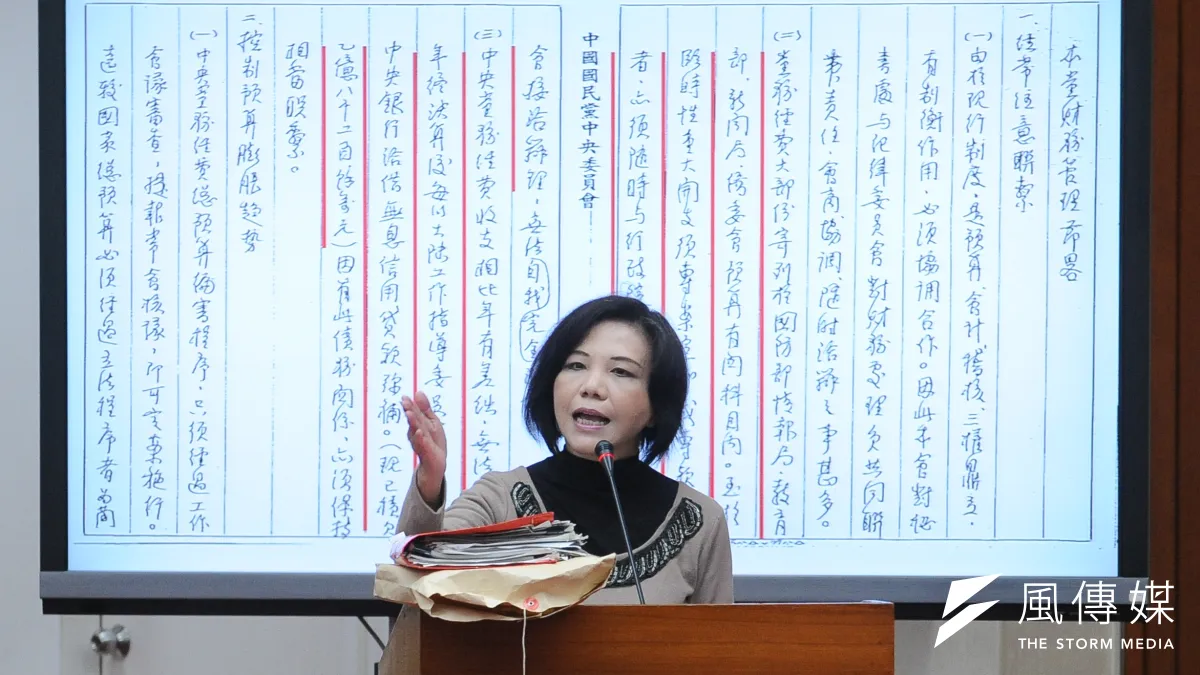 本黨財務管理節畧
一、經常注意聯繫
(一)由於現行制度，是預算、會計、稽核、三權鼎立，
有制衡作用，必須協調合作。因此本會對秘
書處与紀律委員會對財務處理負共同聯
帶責任，會商協調、隨時洽辦之事甚多。
(二)黨務經費大部份寄列於國防部情報局、教育
部、新聞局、僑委會預算有関科目內。至於
臨時性重大開支須專案
者，亦須隨時与行政院
中國國民黨中央委員會
會接洽辦理，無法自我完全
(三)中央黨務經費收支相比年有差絀，無法
年終決算後每以大陸工作指導委員
中央銀行洽借無息信用貸款弥補。(現已積欠
乙億八千二百餘萬元)因有此債務関係，亦須保持
相當联繫。
二、控制預算膨脹趨勢
(一)中央黨務經費總預算編審程序，只須經過工作
會議審查，提報常會核議，即可定案施行。
遠較國家總預算必須經過立法程序者為簡
風傳媒
THE STORM MEDIA